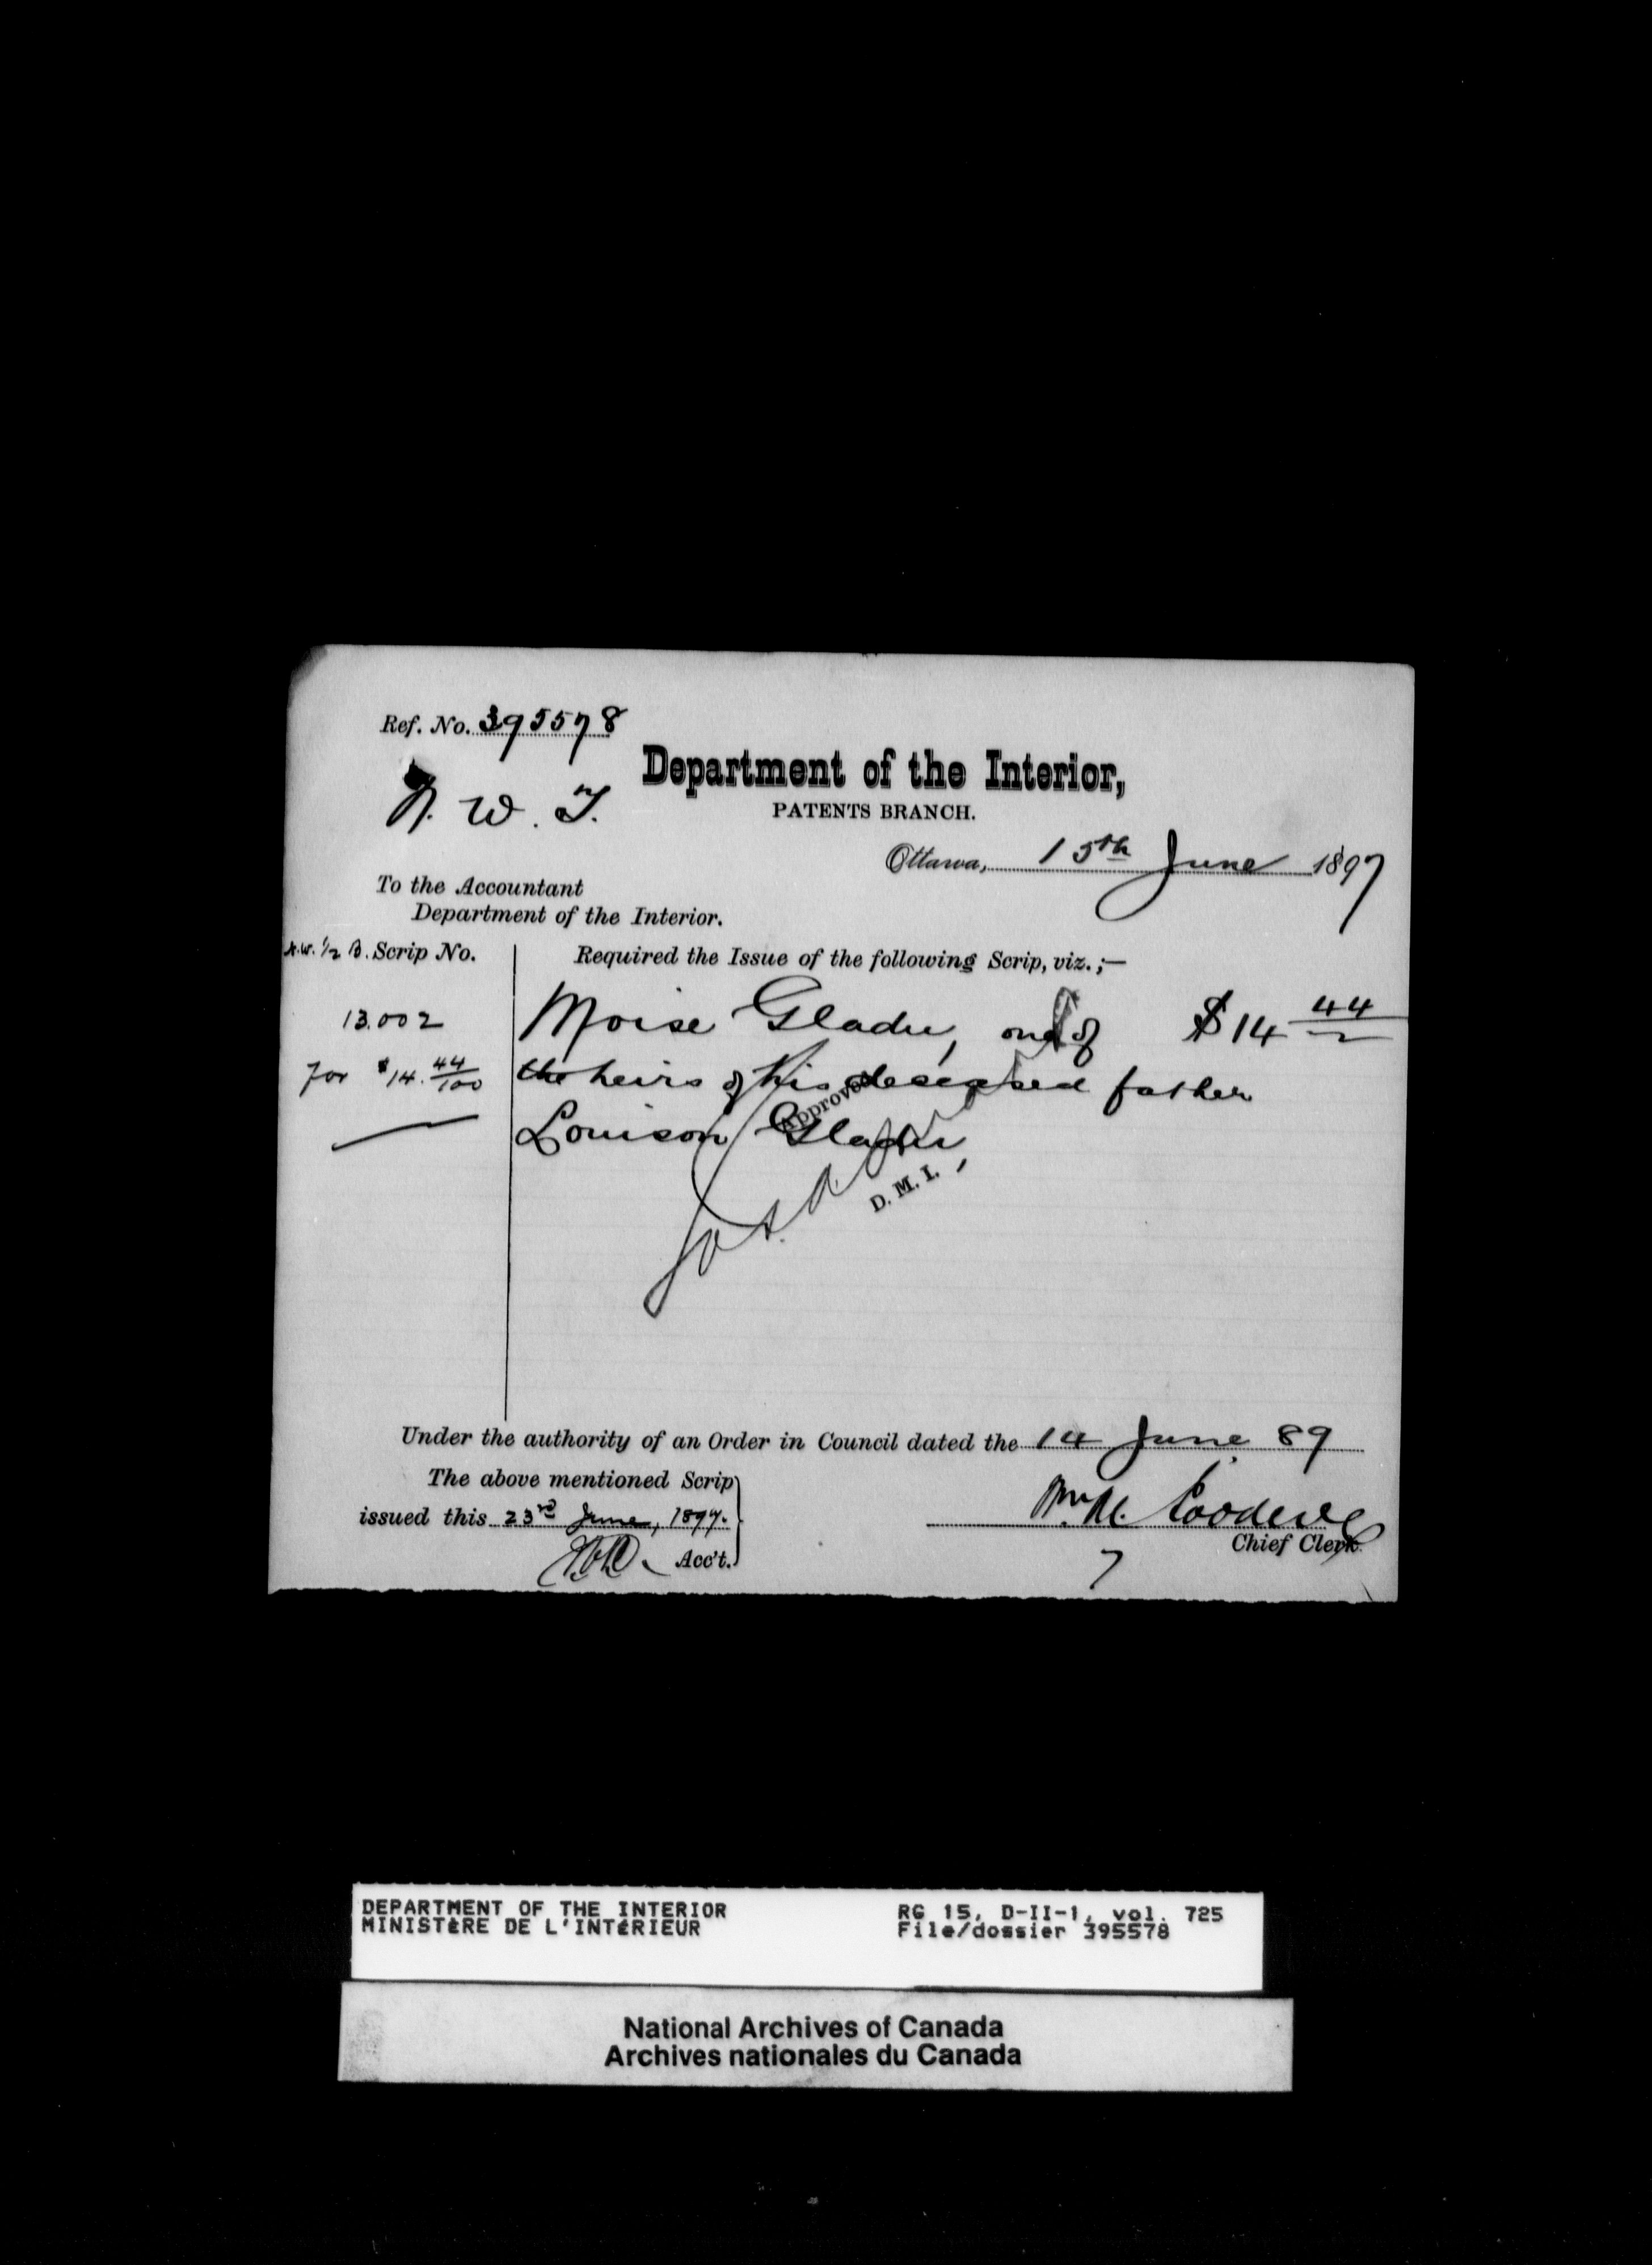 Ref. No. 395578
N. W. T.
Department of the Interior,
PATENTS BRANCH.
Ottawa, 15th June 1897
To the Accountant
Department of the Interior.
N.W. ½ B. Scrip No.
Required the Issue of the following Scrip, viz.;—
13.002
Moise Gladu, one of $14 44
for $14. 44/100
the heirs of his deceased father
Approved
Louison Gladu,
Jas. A.
D. M. I.
Under the authority of an Order in Council dated the 14 June 89
The above mentioned Scrip
issued this 23rd June, 1897.
Acc't.
Wm. M. Goodeve
Chief Clerk.
7
DEPARTMENT OF THE INTERIOR
MINISTÈRE DE L'INTÉRIEUR
RG 15, D-II-1, vol. 725
File/dossier 395578
National Archives of Canada
Archives nationales du Canada